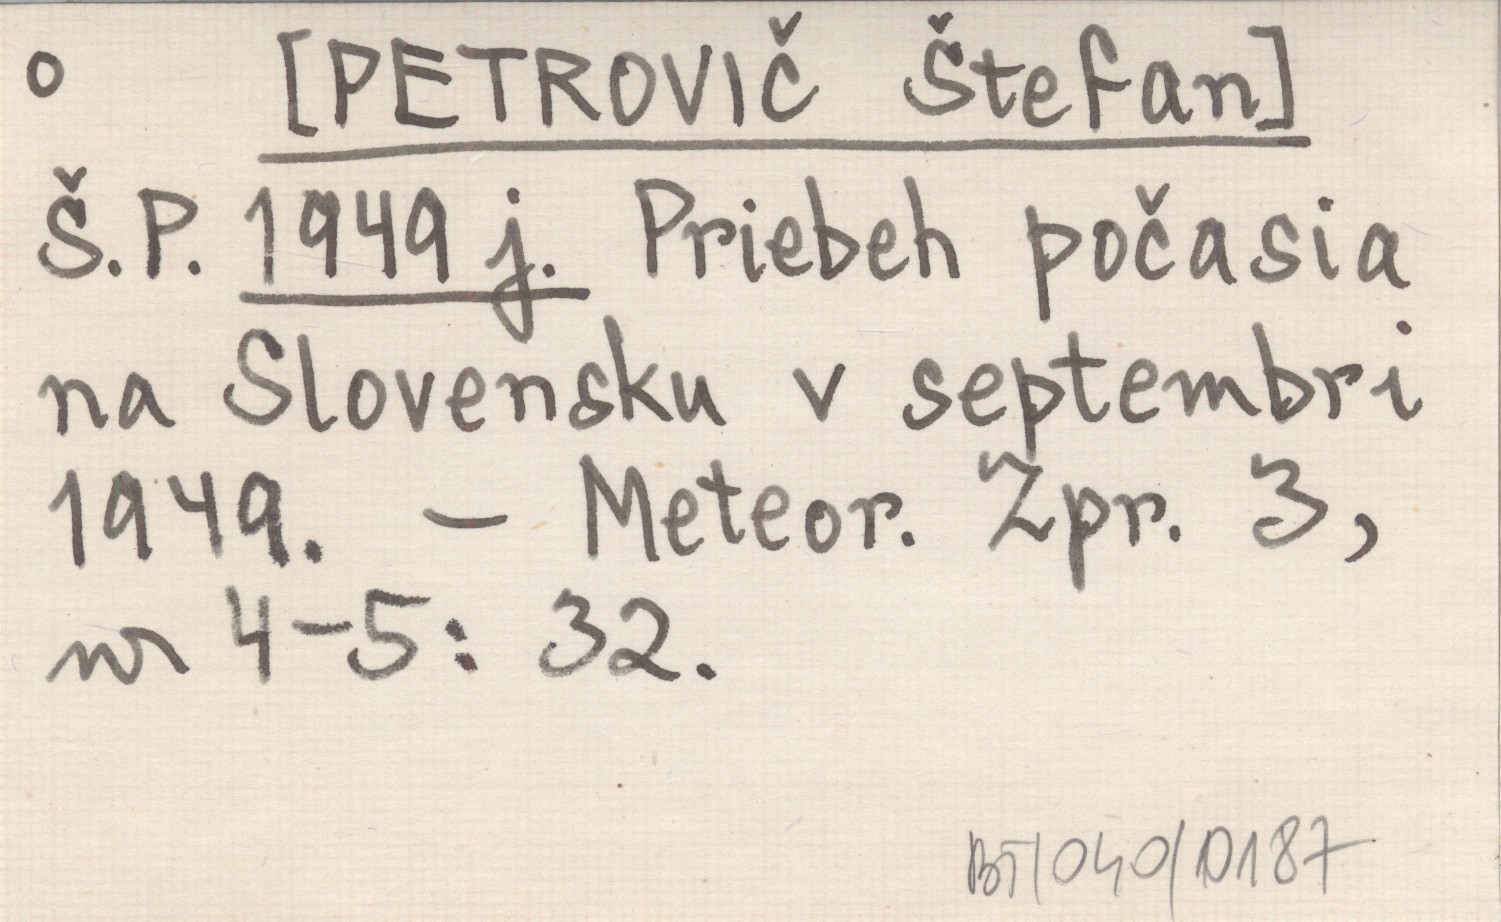 o [PETROVIČ Štefan]
Š.P. 1949 j. Priebeh počasia
na Slovensku v septembri
1949. – Meteor. Zpr. 3,
nr 4–5: 32.
BT/040/D187